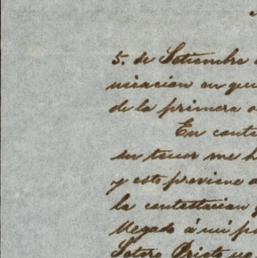 5. de Setiembre
nicacion en que
de la primera
En conte
su tenor me h
y esto previene
la contestacion
llegado á mi p
Sotero Prieto no